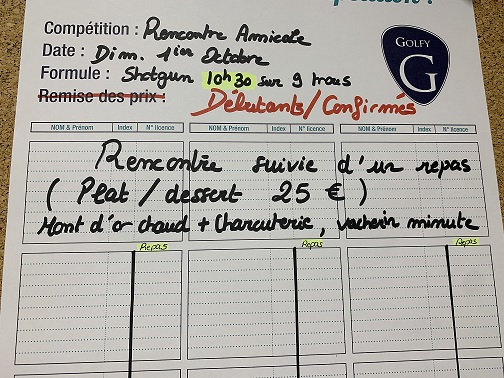 Compétition : Rencontre Amicale
Date : Dim. 1ier Octobre
Formule : Shotgun 10h30 sur 9 trous
Remise des prix :
Débutants/Confirmés
GOLFY
G
NOM & Prénom Index N° licence NOM & Prénom Index N° licence NOM & Prénom Index N° licence
Rencontre suivie d'un repas
( Plat / dessert 25 € )
Mont d'or chaud + Charcuterie, vacherin minute
Repas Repas Repas